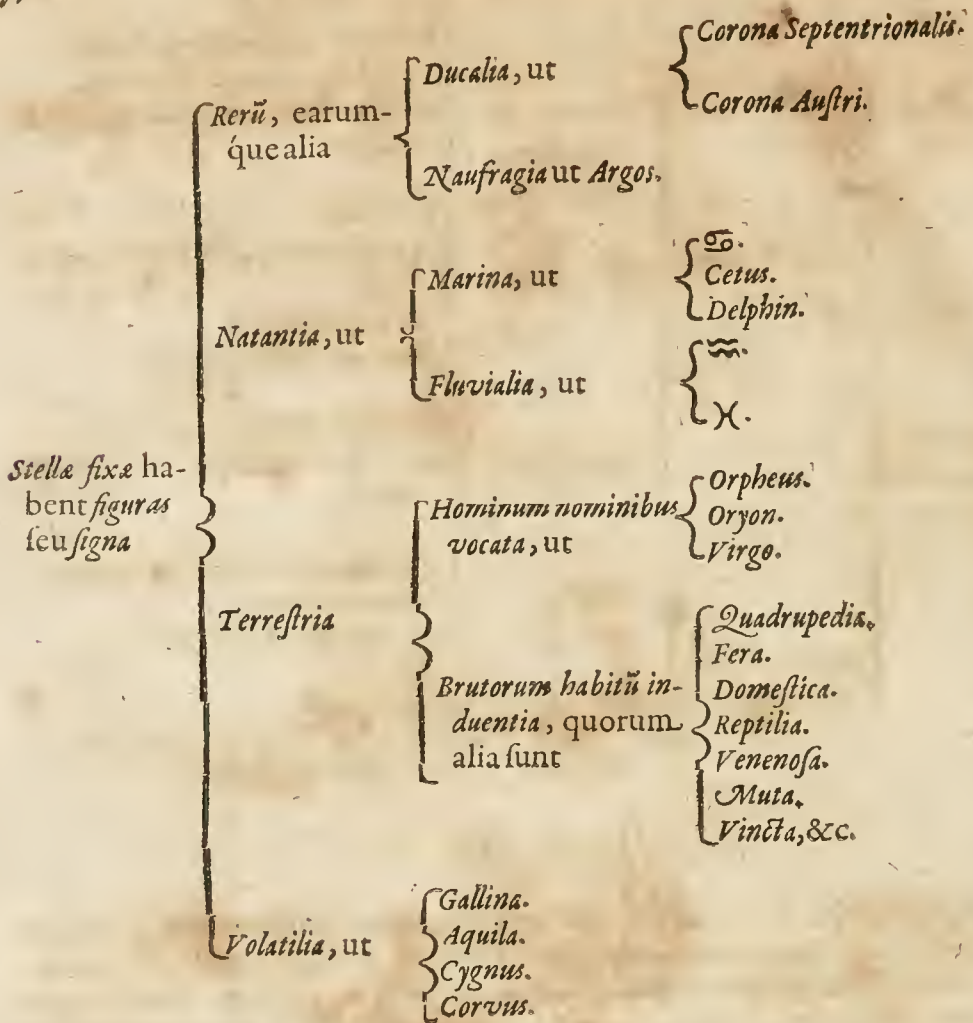 Stellæ fixæ ha-
bent figuras
ſeu ſigna
Rerū, earum-
que alia
Ducalia, ut
Corona Septentrionalis.
Corona Auſtri.
Naufragia ut Argos.
Natantia, ut
Marina, ut
♋.
Cetus.
Delphin.
Fluvialia, ut
♒.
♓.
Terreſtria
Hominum nominibus
vocata, ut
Orpheus.
Oryon.
Virgo.
Brutorum habitū in-
duentia, quorum
alia ſunt
Quadrupedia.
Fera.
Domeſtica.
Reptilia.
Venenoſa.
Muta.
Vincta, &c.
Volatilia, ut
Gallina.
Aquila.
Cygnus.
Corvus.